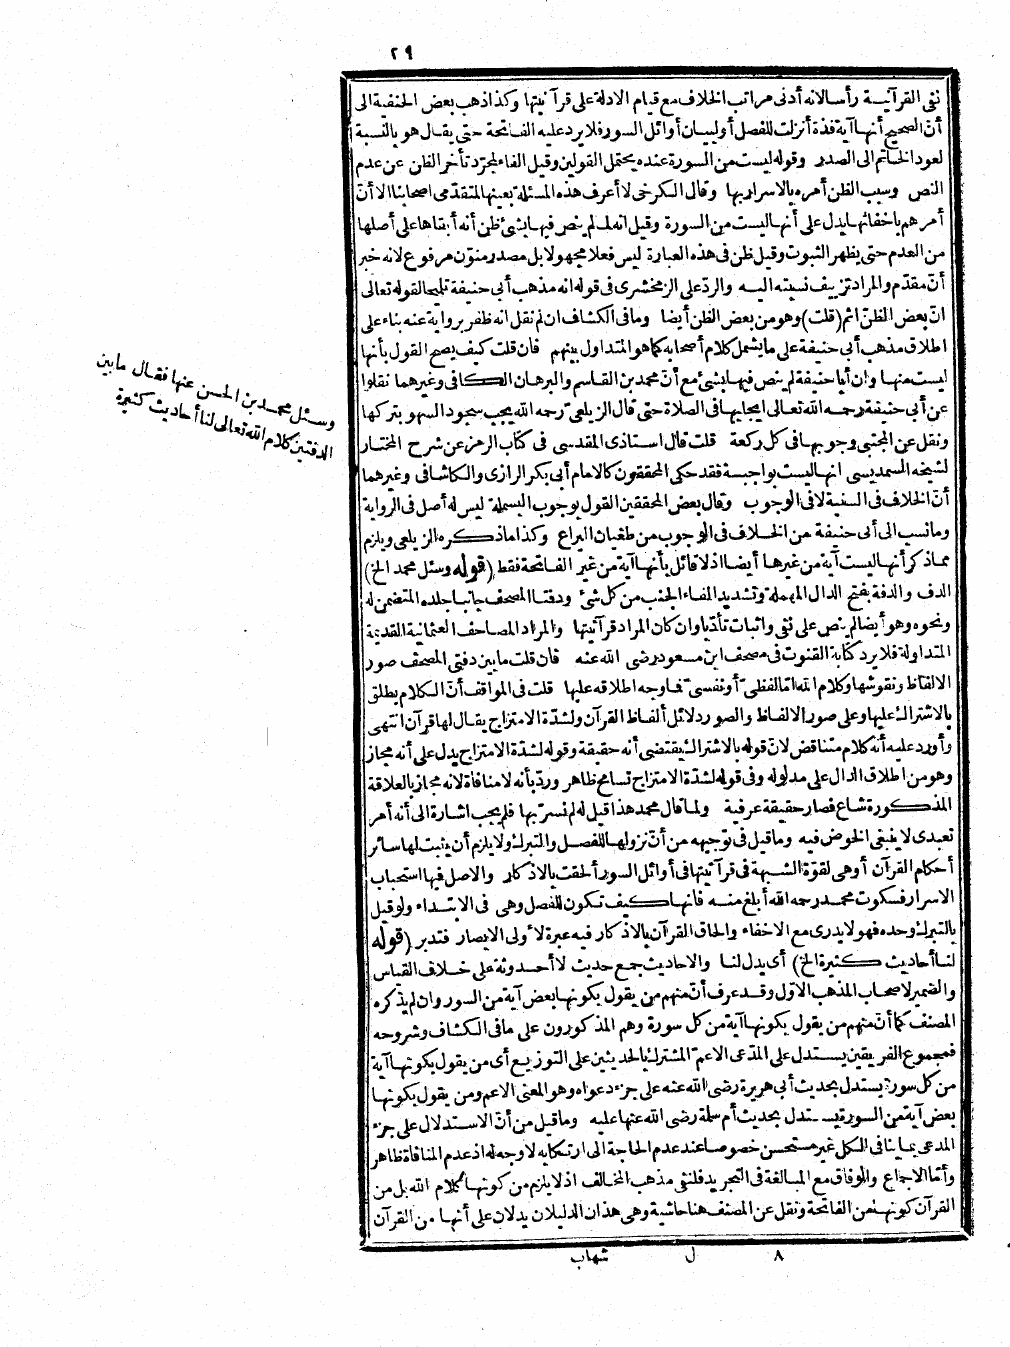 ٢٩
نفي القرآنية رأسا لانه أدنى مراتب الخلاف مع قيام الادلة على قرآنيتها وكذا ذهب بعض الحنفية الى
أنّ الصحيح أنها آية فذة أنزلت للفصل أو لبيان أوائل السور فلا يرد عليه الفاتحة حتى يقال هو بالنسبة
لعود الخاتم الى الصدر وقوله ليست من السورة عنده يحتمل القولين وقيل الفاء لمجرّد تأخر الظن عن عدم
النص وسبب الظن أمره بالاسرار بها وقال الكرخى لا أعرف هذه المسئلة بعينها لمتقدّمى أصحابنا الا أنّ
أمرهم باخفائها يدل على أنها ليست من السورة وقيل انه لما لم ينص فيها بشئ ظن أنه أبقاها على أصلها
من العدم حتى يظهر الثبوت وقيل ظن فى هذه العبارة ليس فعلا مجهولا بل مصدر منوّن مرفوع لانه خبر
أنّ مقدّم والمراد تزييف نسبته اليه والردّ على الزمخشرى فى قوله انه مذهب أبى حنيفة تلميحا لقوله تعالى
انّ بعض الظنّ اثم (قلت) وهو من بعض الظن أيضا وما فى الكشاف ان لم نقل انه ظفر برواية عنه بناء على
اطلاق مذهب أبى حنيفة على ما يشمل كلام أصحابه كما هو المتداول بينهم فان قلت كيف يصح القول بأنها
ليست منها وان أبا حنيفة لم ينص فيها بشئ مع أنّ محمد بن القاسم والبرهان الكافى وغيرهما نقلوا
عن أبى حنيفة رحمه الله تعالى ايجابها فى الصلاة حتى قال الزيلعىّ رحمه الله يجب سجود السهو بتركها
ونقل عن المجتبى وجوبها فى كل ركعة قلت قال استاذى المقدسى فى كتاب الرمز عن شرح المختار
لشيخه السمديسى انها ليست بواجبة فقد حكى المحققون كالامام أبى بكر الرازى والكاشانى وغيرهما
أنّ الخلاف فى السنية لا فى الوجوب وقال بعض المحققين القول بوجوب البسملة ليس له أصل فى الرواية
وما نسب الى أبى حنيفة من الخلاف فى الوجوب من طغيان اليراع وكذا ما ذكره الزيلعى ويلزم
مما ذكر أنها ليست آية من غيرها أيضا اذ لا قائل بأنها آية من غير الفاتحة فقط (قوله وسئل محمد الخ)
الدف والدفة بفتح الدال المهملة وتشديد الفاء الجنب من كل شئ ودفتا المصحف جانبا جلده المتضمن له
ونحوه وهو أيضا لم ينص على نفى واثبات تأدّبا وان كان المراد قرآنيتها والمراد المصاحف العثمانية القديمة
المتداولة فلا يرد كتابة القنوت فى مصحف ابن مسعود رضى الله عنه فان قلت ما بين دفتى المصحف صور
الالفاظ ونقوشها وكلام الله امّا لفظىّ أو نفسىّ فما وجه اطلاقه عليها قلت فى المواقف أنّ الكلام يطلق
بالاشتراك عليها وعلى صور الالفاظ والصور دلائل ألفاظ القرآن ولشدّة الامتزاج يقال لها قرآن انتهى
وأورد عليه أنه كلام متناقض لانّ قوله بالاشتراك يقتضى أنه حقيقة وقوله لشدّة الامتزاج يدل على أنه مجاز
وهو من اطلاق الدال على مدلوله وفى قوله لشدّة الامتزاج تسامح ظاهر وردّ بأنه لا منافاة لانه مجاز بالعلاقة
المذكورة شاع فصار حقيقة عرفية ولما قال محمد هذا قيل له لم نسرّ بها فلم يجب اشارة الى أنه أمر
تعبدى لا ينبغى الخوض فيه وما قيل فى توجيهه من أنّ نزولها للفصل والتبرك ولا يلزم أن يثبت لها سائر
أحكام القرآن أو هى لقوّة الشبهة فى قرآنيتها فى أوائل السور ألحقت بالاذكار والاصل فيها استحباب
الاسرار فسكوت محمد رحمه الله أبلغ منه فانها كيف تكون للفصل وهى فى الابتداء ولو قيل
بالتبرك وحده فهو لا يدرى مع الاخفاء والحاق القرآن بالاذكار فيه عبرة لأولى الابصار فتدبر (قوله
لنا أحاديث كثيرة الخ) أى يدل لنا والاحاديث جمع حديث لا أحدوثة على خلاف القياس
والضمير لاصحاب المذهب الاوّل وقد عرف أنّ منهم من يقول بكونها بعض آية من السور وان لم يذكره
المصنف كما أنّ منهم من يقول بكونها آية من كل سورة وهم المذكورون على ما فى الكشاف وشروحه
فمجموع الفريقين يستدل على المدّعى الاعمّ المشترك بالحديثين على التوزيع أى من يقول بكونها آية
من كل سورة يستدل بحديث أبى هريرة رضى الله عنه على جزء دعواه وهو المعنى الاعم ومن يقول بكونها
بعض آية من السورة يستدل بحديث أم سلمة رضى الله عنها عليه وما قيل من أنّ الاستدلال على جزء
المدعى بما ينافى الكل غير مستحسن خصوصا عند عدم الحاجة الى ارتكابه لا وجه له اذ عدم المنافاة ظاهر
وأمّا الاجماع والوفاق مع المبالغة فى التجريد فلنفى مذهب المخالف اذ لا يلزم من كونها كلام الله بل من
القرآن كونها من الفاتحة ونقل عن المصنف هنا حاشية وهى هذان الدليلان يدلان على أنها من القرآن
وسئل محمد بن الحسن عنها فقال ما بين
الدفتين كلام الله تعالى لنا أحاديث كثيرة
٨ ل شهاب